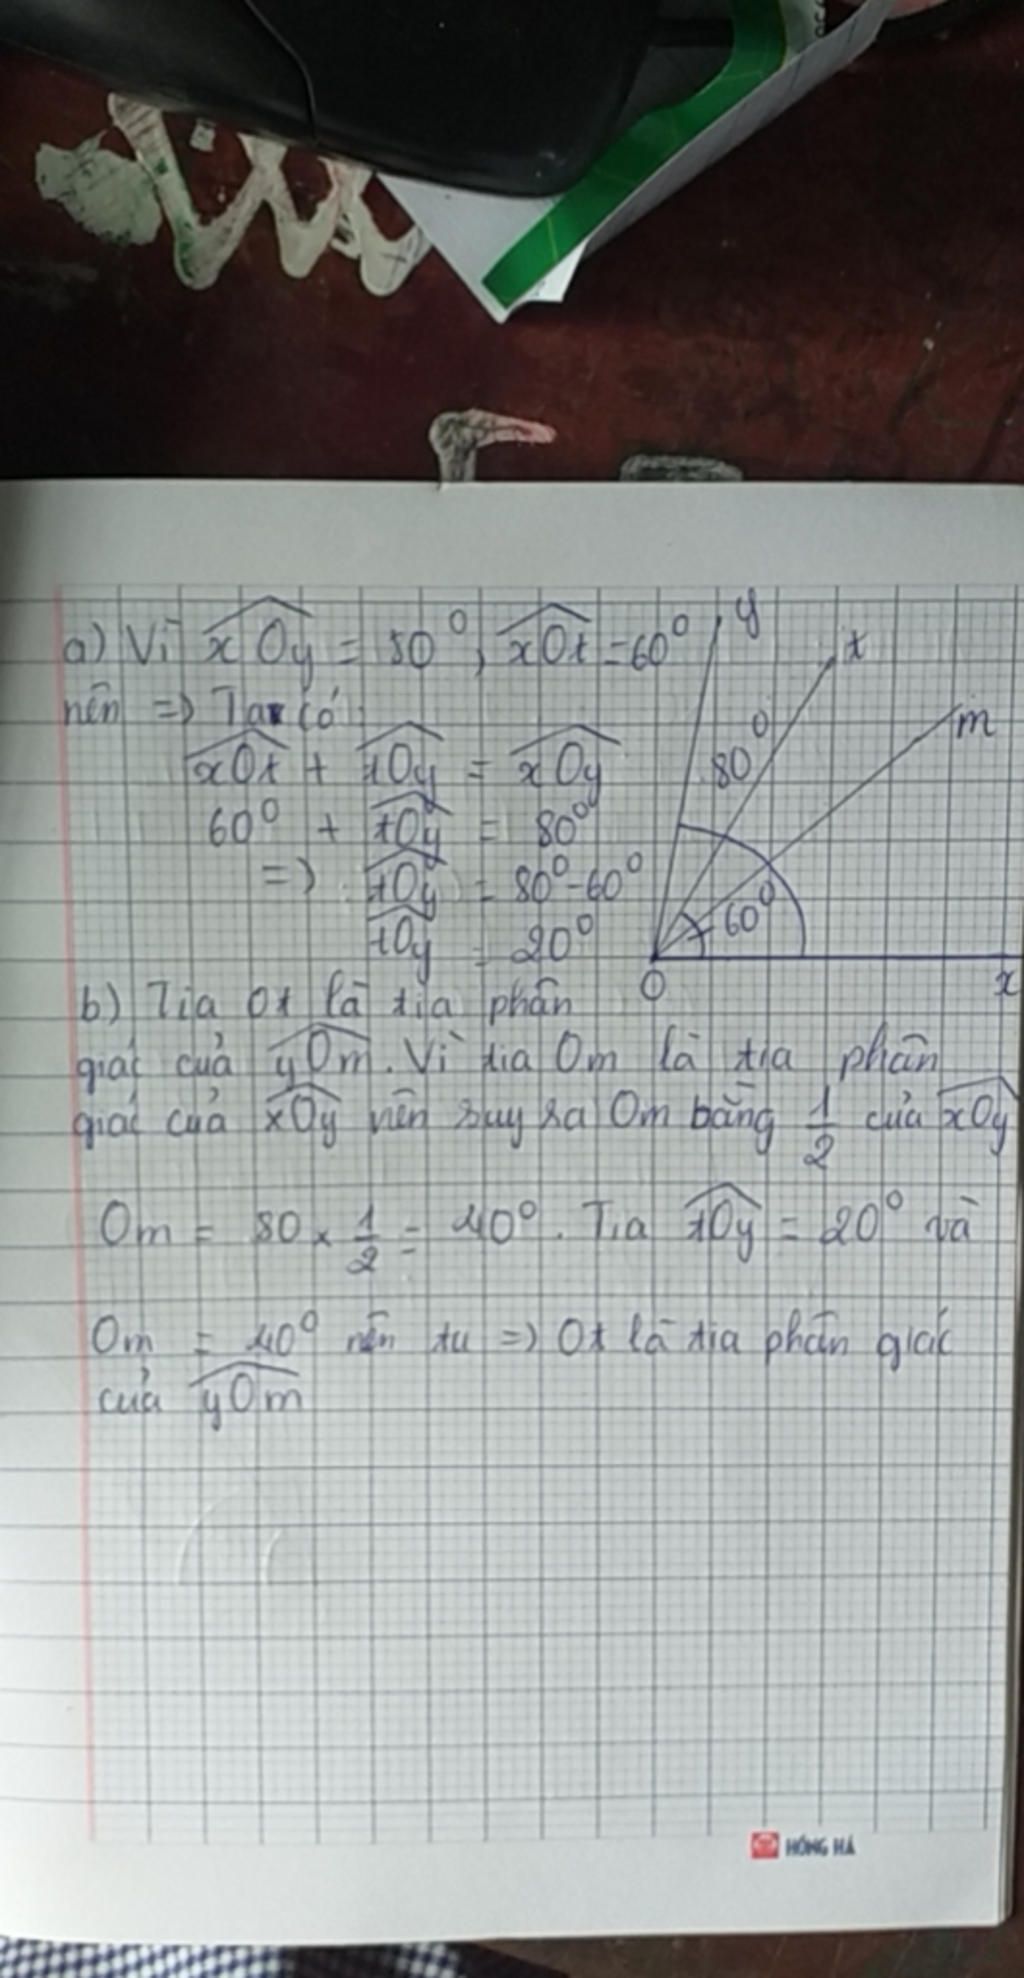 a) Vì xOy = 80⁰, xOt = 60⁰
nên => Ta có
xOt + tOy = xOy
60⁰ + tOy = 80⁰
=> tOy = 80⁰-60⁰
tOy = 20⁰
y
t
m
80⁰
60⁰
O
x
b) Tia Ot là tia phân
giác của yOm. Vì tia Om là tia phân
giác của xOy nên suy ra Om bằng 1/2 của xOy
Om = 80 x 1/2 = 40⁰. Tia tOy = 20⁰ và
Om = 40⁰ nên => Ot là tia phân giác
của yOm
HỒNG HÀ